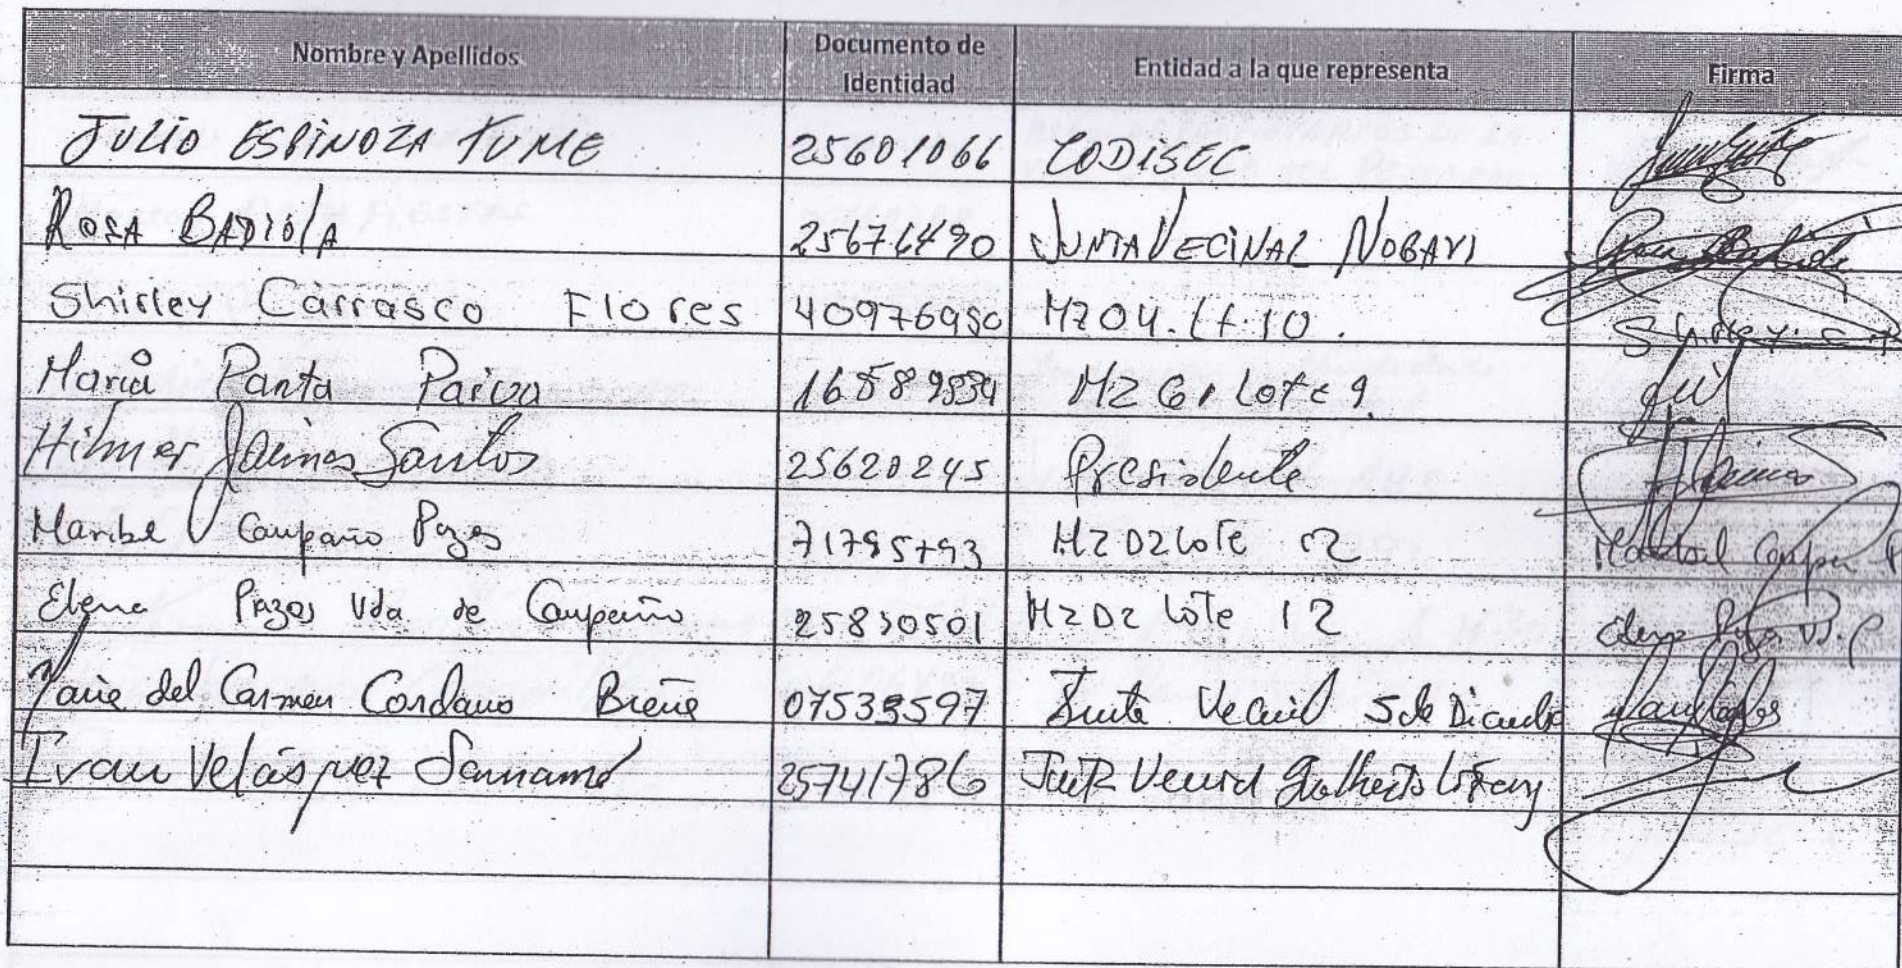 Nombre y Apellidos Documento de Identidad Entidad a la que representa Firma
JULIO ESPINOZA TUME 25601066 CODISEC
ROSA BADIOLA 25676490 JUNTA VECINAL NOGAVI
Shirley Carrasco Flores 40976950 MZ04. Lt. 10. Shirley. C
Maria Panta Paiva MZ G1 Lote 9.
Hilmer Jaimes Santos 25620245 Presidente
Maribel Campaño Pozos 71795793 MZ D2 Lote 12
Elena Pazos Vda de Campaño 25830501 MZ D2 Lote 12
Maria del Carmen Cordano Breña 07533597 Junta Vecinal 5 de Diciembre
Ivan Velásquez Samamé 25741786